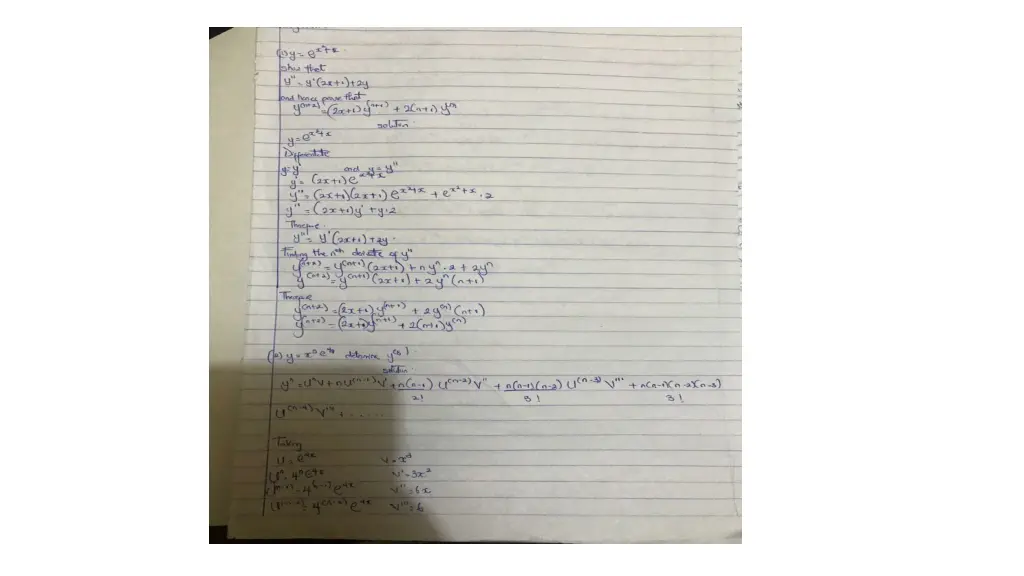 (1) y = e^{x²+x}.
show that
y'' = y'(2x+1)+2y
and hence prove that
y^{(n+2)} = (2x+1) y^{(n+1)} + 2(n+1) y^n
solution.
y = e^{x²+x}
Differentiate
y = y' and y = y''
y' = (2x+1) e^{x²+x}
y'' = (2x+1)(2x+1) e^{x²+x} + e^{x²+x} . 2
y'' = (2x+1)y' + y.2
y'' = y'(2x+1)+2y.
Finding the nth of y''
y^{(n+2)} = y^{(n+1)} (2x+1) + n y^n . 2 + 2y^n
y^{(n+2)} = y^{(n+1)} (2x+1) + 2 y^n (n+1)
y^{(n+2)} = (2x+1) y^{(n+1)} + 2 y^{(n)} (n+1)
y^{(n+2)} = (2x+1) y^{(n+1)} + 2(n+1) y^{(n)}
(2) y = x³ e^{4x} determine
solution.
y^n = U^n V + n U^{(n-1)} V' + n(n-1)/2! U^{(n-2)} V'' + n(n-1)(n-2)/3! U^{(n-3)} V''' + n(n-1)(n-2)(n-3)/3!
U^{(n-4)} V'''' + ......
Taking
U = e^{4x} V = x³
U^n = 4^n e^{4x} V' = 3x²
U^{(n-1)} = 4^{(n-1)} e^{4x} V'' = 6x
U^{(n-2)} = 4^{(n-2)} e^{4x} V''' = 6